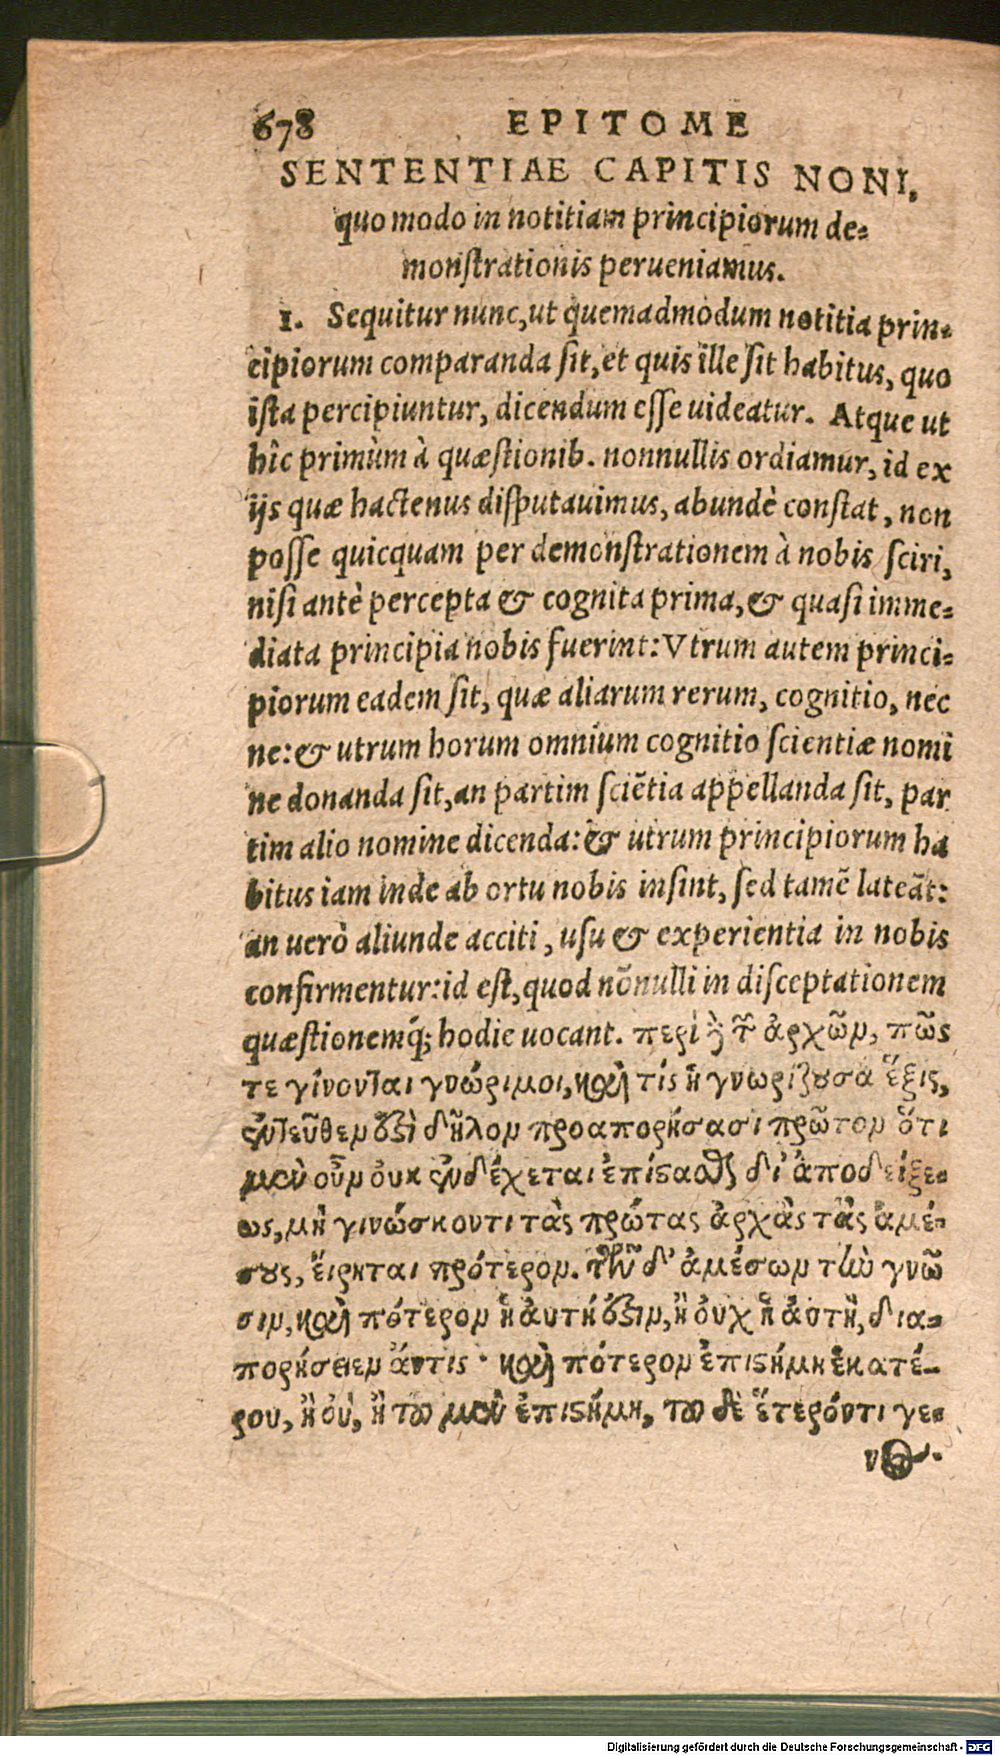 678 EPITOME
SENTENTIAE CAPITIS NONI,
quo modo in notitiam principiorum de=
monstrationis perueniamus.
1. Sequitur nunc, ut quemadmodum notitia prin=
cipiorum comparanda sit, et quis ille sit habitus, quo
ista percipiuntur, dicendum esse uideatur. Atque ut
hîc primùm à quæstionib. nonnullis ordiamur, id ex
ijs quæ hactenus disputauimus, abundè constat, non
posse quicquam per demonstrationem à nobis sciri,
nisi antè percepta & cognita prima, & quasi imme=
diata principia nobis fuerint: Vtrum autem princi=
piorum eadem sit, quæ aliarum rerum, cognitio, nec
ne: & utrum horum omnium cognitio scientiæ nomi
ne donanda sit, an partim sciẽtia appellanda sit, par
tim alio nomine dicenda: & utrum principiorum ha
bitus iam inde ab ortu nobis insint, sed tamẽ lateãt:
an uerò aliunde acciti, usu & experientia in nobis
confirmentur: id est, quod nõnulli in disceptationem
quæstionemq́; hodie uocant. περὶ δὲ τῶν ἀρχῶν, πῶς
τε γίνονται γνώριμοι, καὶ τίς ἡ γνωρίζουσα ἕξις,
ἐντεῦθεν ἐστὶ δῆλον προαπορήσασι πρῶτον ὅτι
μὲν οὖν οὐκ ἐνδέχεται ἐπίστασθαι δι' ἀποδείξε=
ως, μὴ γινώσκοντι τὰς πρώτας ἀρχὰς τὰς ἀμέ=
σους, εἴρηται πρότερον. τῶν δ' ἀμέσων τὴν γνῶ
σιν, καὶ πότερον ἡ αὐτή ἐστιν, ἢ οὐχ ἡ αὐτὴ, δια=
πορήσειεν ἄν τις· καὶ πότερον ἐπιστήμη ἑκατέ=
ρου, ἢ οὐ, ἢ τοῦ μὲν ἐπιστήμη, τοῦ δὲ ἕτερόν τι γέ=
νος.
Digitalisierung gefördert durch die Deutsche Forschungsgemeinschaft - DFG